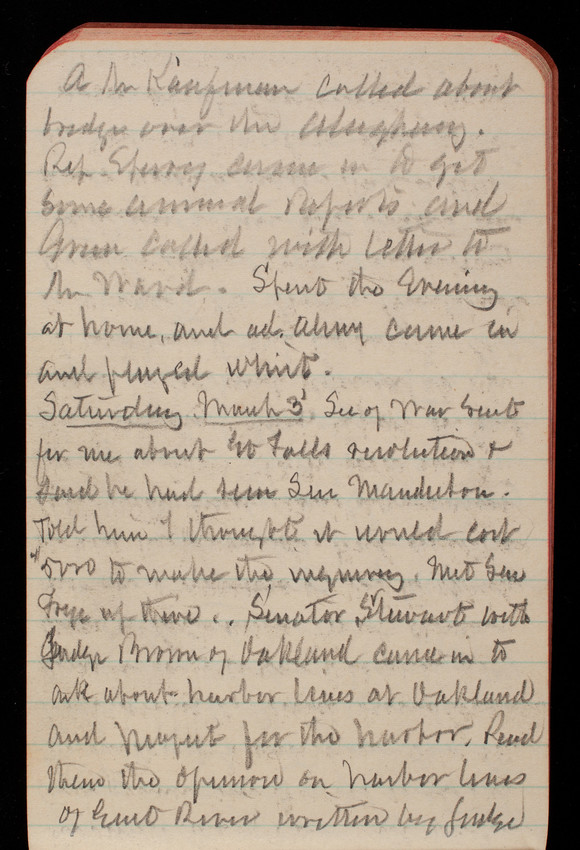 A Mr Kaufman called about
bridge over the Allegheny.
Rep. came in to get
some annual reports and
Green called with letter to
Mr Ward. Spent the Evening
at home, and ad. came in
and played whist.
Saturday March 3d Sec of War sent
for me about Gt Falls resolution &
said he had seen Sen Manderson.
Told him I thought it would cost
$5000 to make the inquiry. Met Sen
Frye up there.. Senator Stewart with
Judge Brown of Oakland came in to
ask about harbor lines at Oakland
and project for the harbor. Read
them the opinion on harbor lines
of East River written by Judge